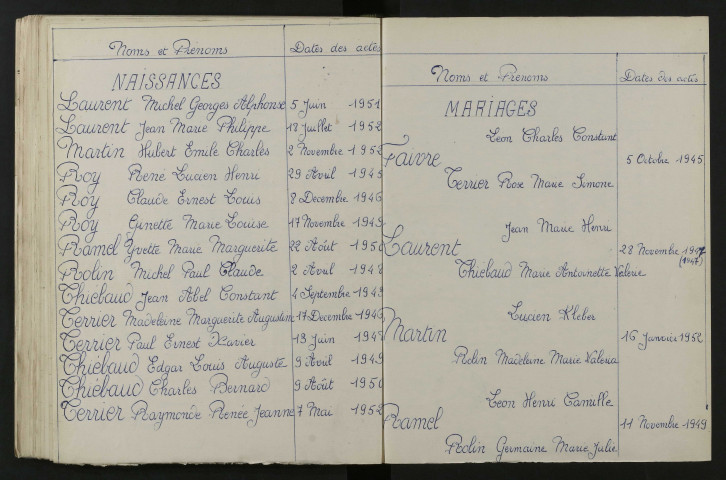 Noms et Prénoms Dates des actes
NAISSANCES
Laurent Michel Georges Alphonse 5 Juin 1951
Laurent Jean Marie Philippe 13 Juillet 1952
Martin Hubert Emile Charles 2 Novembre 1952
Roy René Lucien Henri 29 Avril 1945
Roy Claude Ernest Louis 8 Decembre 1946
Roy Ginette Marie Louise 17 Novembre 1949
Ramel Yvette Marie Marguerite 22 Août 1950
Rolin Michel Paul Claude 2 Avril 1948
Thiebaud Jean Abel Constant 4 Septembre 1945
Terrier Madeleine Marguerite Augustine 17 Decembre 1946
Terrier Paul Ernest Xavier 13 Juin
Thiébaud Edgar Louis Auguste 9 Avril 1949
Thiébaud Charles Bernard 9 Août 1950
Terrier Raymonde Renée Jeanne 7 Mai 1952
Noms et Prenoms Dates des actes
MARIAGES
Leon Charles Constant
Faivre 5 Octobre 1945
Terrier Rose Marie Simone
Jean Marie Henri
Laurent 28 Novembre 1947
(1947)
Thiébaud Marie Antoinette Valerie
Lucien Kleber
Martin 16 Janvier 1952
Rolin Madeleine Marie Valeria
Leon Henri Camille
Ramel 11 Novembre 1949
Rolin Germaine Marie Julie